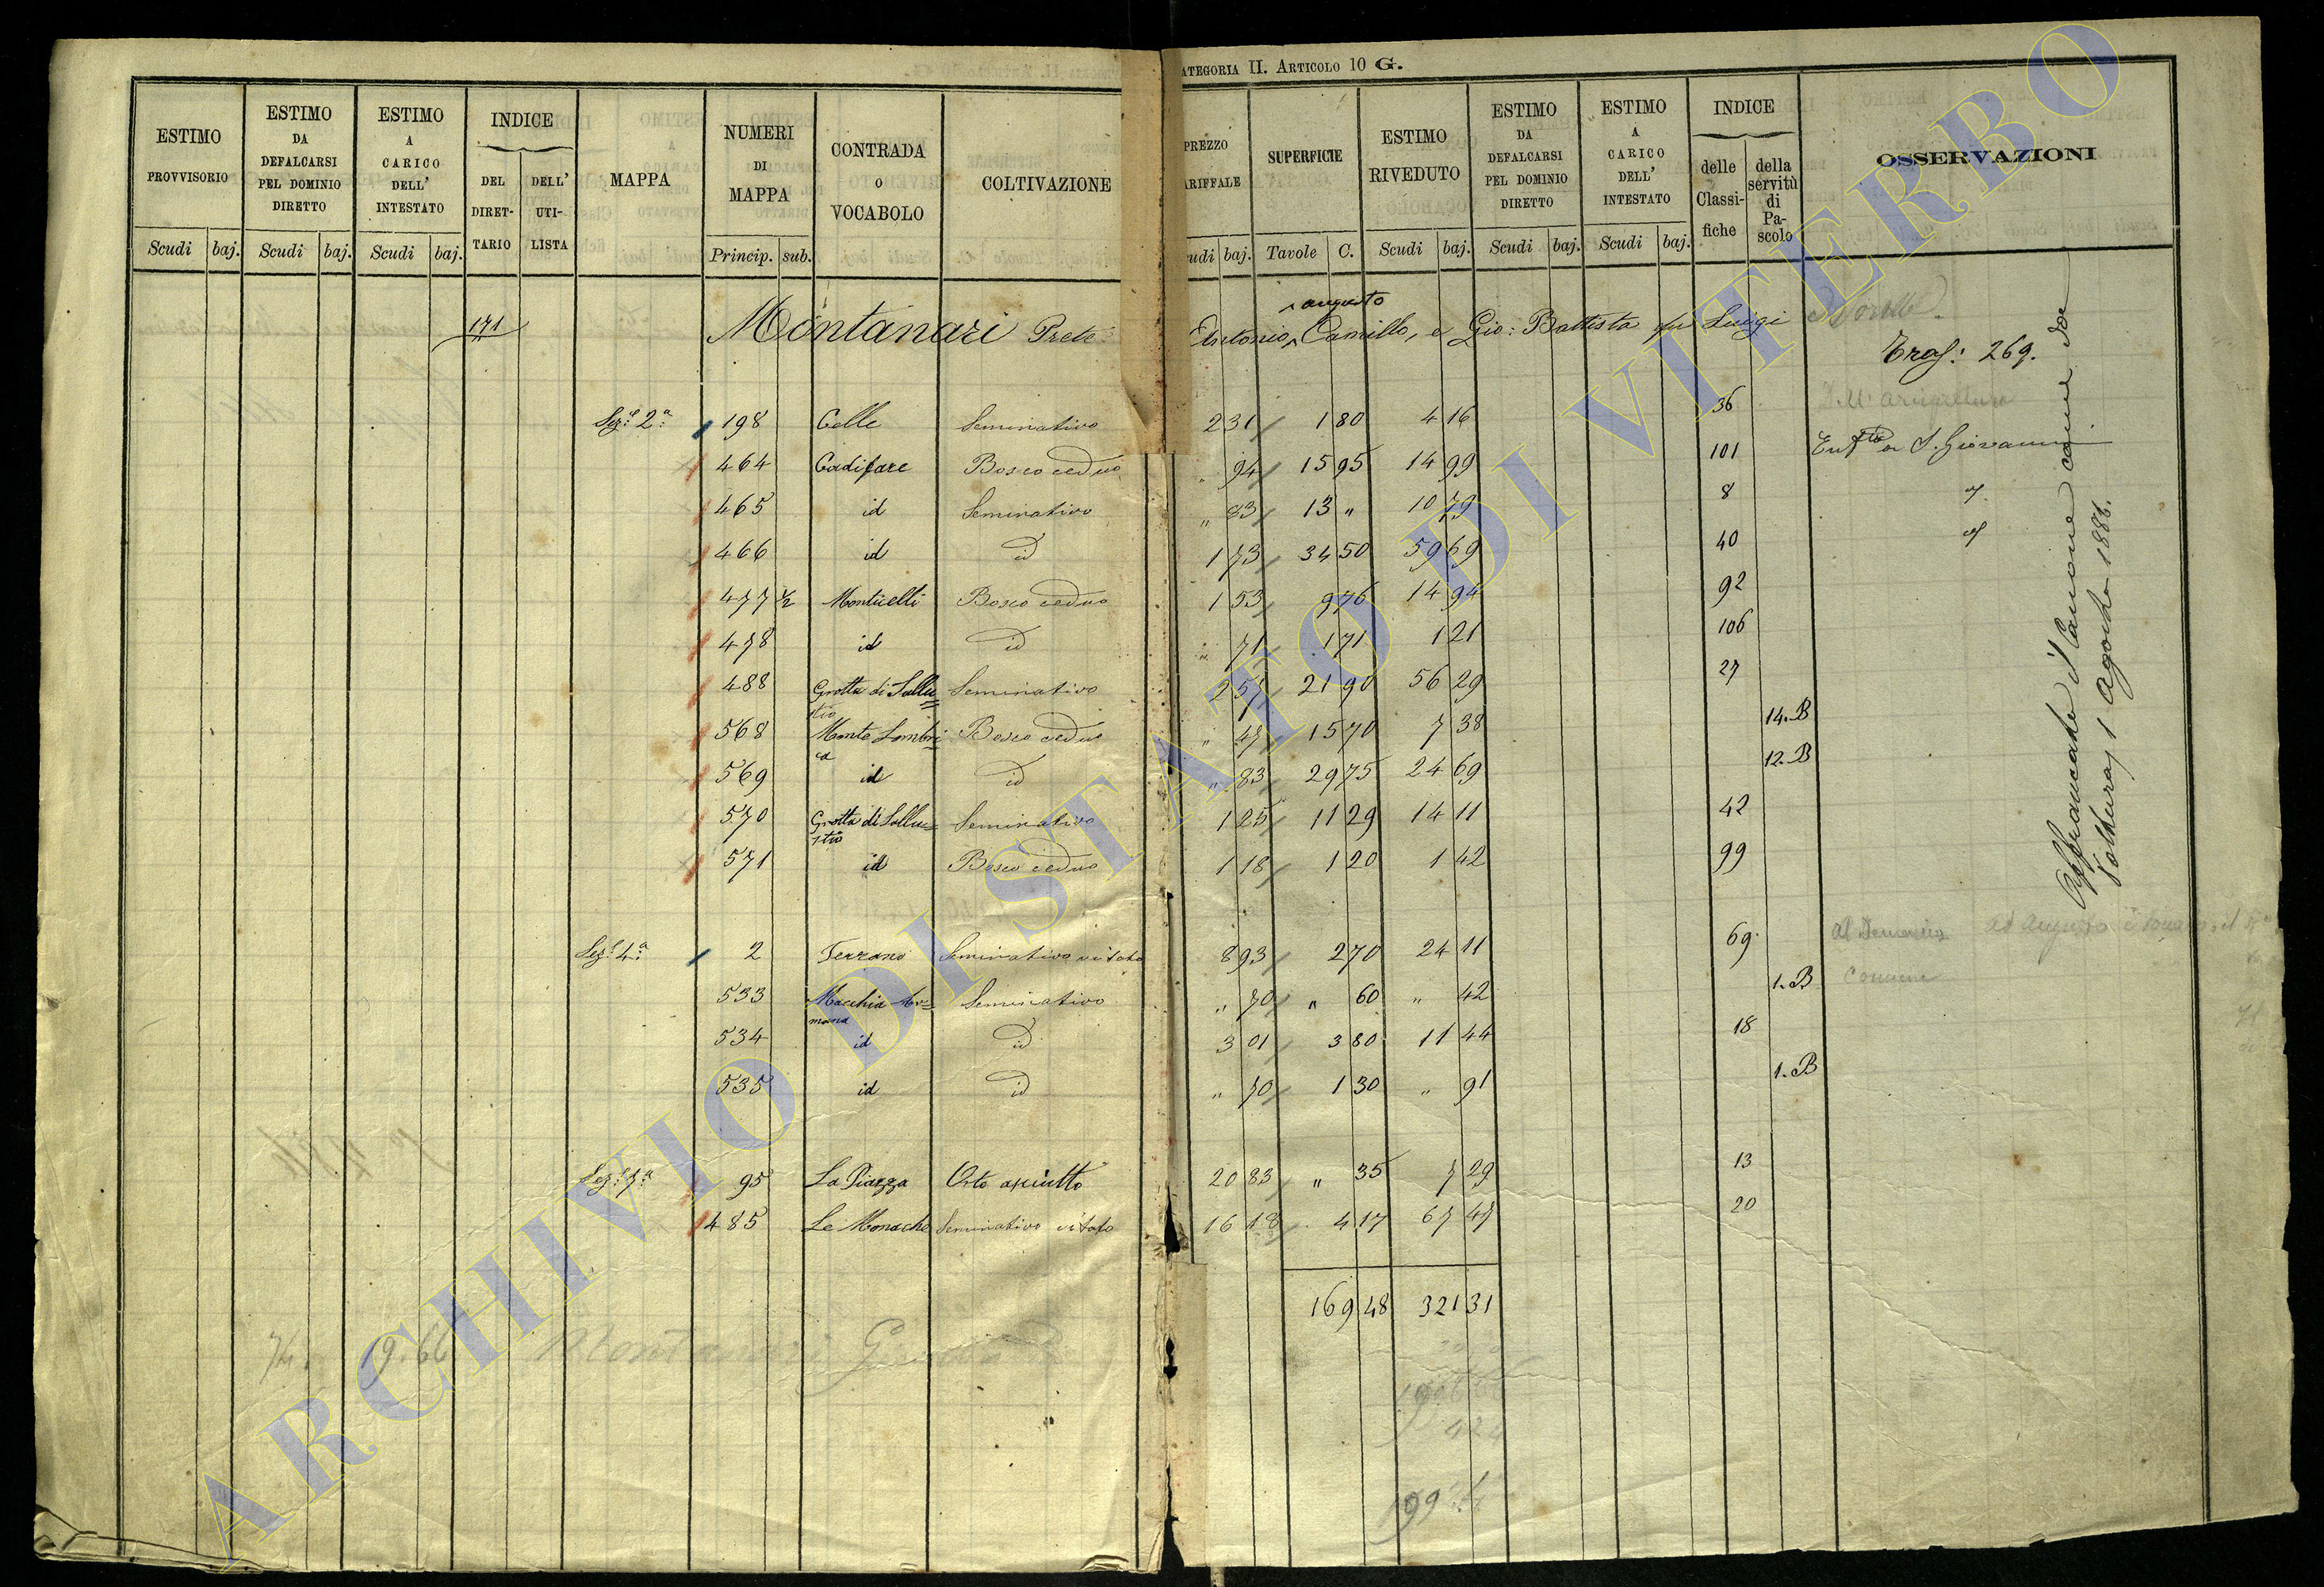 ATEGORIA II. ARTICOLO 10 G.
ESTIMO PROVVISORIO Scudi baj.
ESTIMO DA DEFALCARSI PEL DOMINIO DIRETTO Scudi baj.
ESTIMO A CARICO DELL' INTESTATO Scudi baj.
INDICE DEL DIRET-TARIO DELL' UTI-LISTA
MAPPA
NUMERI DI MAPPA Princip. sub.
CONTRADA O VOCABOLO
COLTIVAZIONE
PREZZO ARIFFALE udi baj.
SUPERFICIE Tavole C.
ESTIMO RIVEDUTO Scudi baj.
ESTIMO DA DEFALCARSI PEL DOMINIO DIRETTO Scudi baj.
ESTIMO A CARICO DELL' INTESTATO Scudi baj.
INDICE delle Classi-fiche della servitù di Pa-scolo
OSSERVAZIONI
augusto
171 Montanari Prete Antonio, Camillo, e Gio: Battista fu Luigi
Tras: 269.
Sez. 2ª 198 Celle Seminativo 2 31 1 80 4 16 36
464 Cadifare Bosco ceduo " 94 15 95 14 99 101 S. Giovanni
465 id Seminativo " 83 13 " 10 79 8
466 id id 1 73 34 50 59 69 40
477 1/2 Monticelli Bosco ceduo 1 53 9 76 14 94 92
478 id id " 71 1 71 1 21 106
488 Grotta di Sallu= Seminativo 2 57 21 90 56 29 27
stio
568 Monte Lombri= Bosco ceduo " 47 15 70 7 38 14.B
ca
569 id id " 83 29 75 24 69 12.B
570 Grotta di Sallu= Seminativo 1 25 11 29 14 11 42
stio
571 id Bosco ceduo 1 18 1 20 1 42 99
Sez. 4ª 2 Terrano Seminativo vitato 8 93 2 70 24 11 69
533 Macchia Seminativo " 70 " 60 " 42 1.B
mana
534 id id 3 01 3 80 11 44 18
535 id id " 70 1 30 " 91 1.B
Sez. 7ª 95 La Piazza Orto asciutto 20 83 " 35 7 29 13
485 Le Monache Seminativo vitato 16 18 4 17 67 47 20
169 48 321 31
Affrancato il Canone come da
Voltura 1 Agosto 1886.
Al Demanio
Comune
74 19.66 Montanari
ARCHIVIO DI STATO DI VITERBO